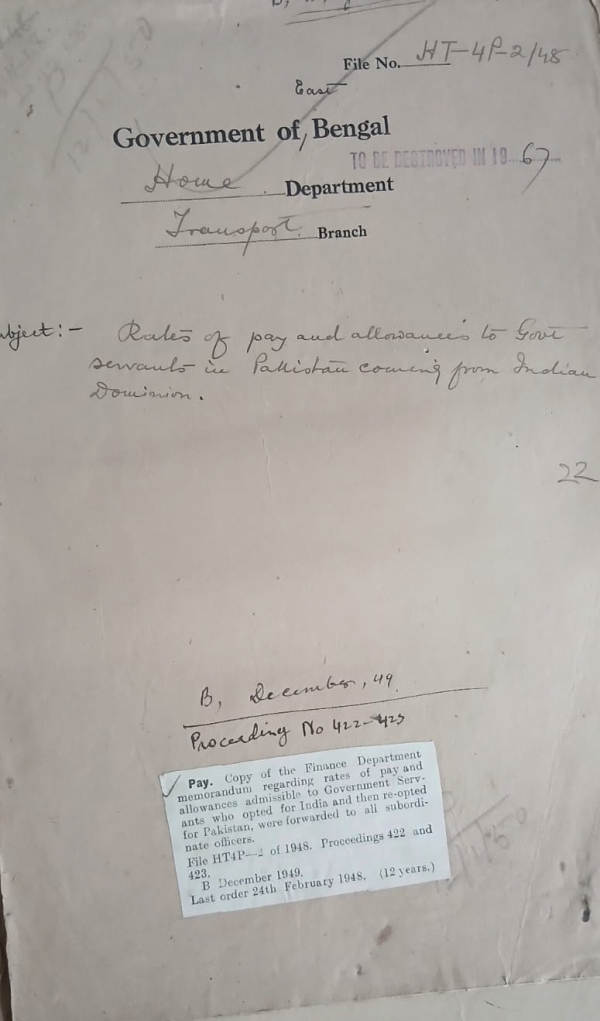 File No. HT-4P-2/48
East
Government of, Bengal
TO BE DESTROYED IN 19 67
Home Department
Transport Branch
ubject:- Rates of pay and allowances to Govt
servants in Pakistan coming from Indian
Dominion.
22
B, December, 49
Proceeding No 422-423
Pay. Copy of the Finance Department
memorandum regarding rates of pay and
allowances admissible to Government Serv-
ants who opted for India and then re-opted
for Pakistan, were forwarded to all subordi-
nate officers.
File HT4P—2 of 1948. Proceedings 422 and
423.
B December 1949.
Last order 24th February 1948. (12 years.)